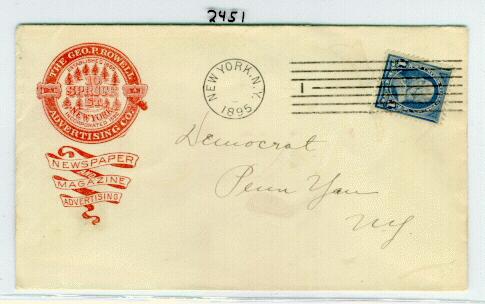 2451
THE GEO. P. ROWELL
10
SPRUCE
ST.
NEW YORK
ADVERTISING CO.
NEWSPAPER
AND
MAGAZINE
ADVERTISING
NEW YORK, N.Y.
1895
1
Democrat
Penn Yan
N.Y.